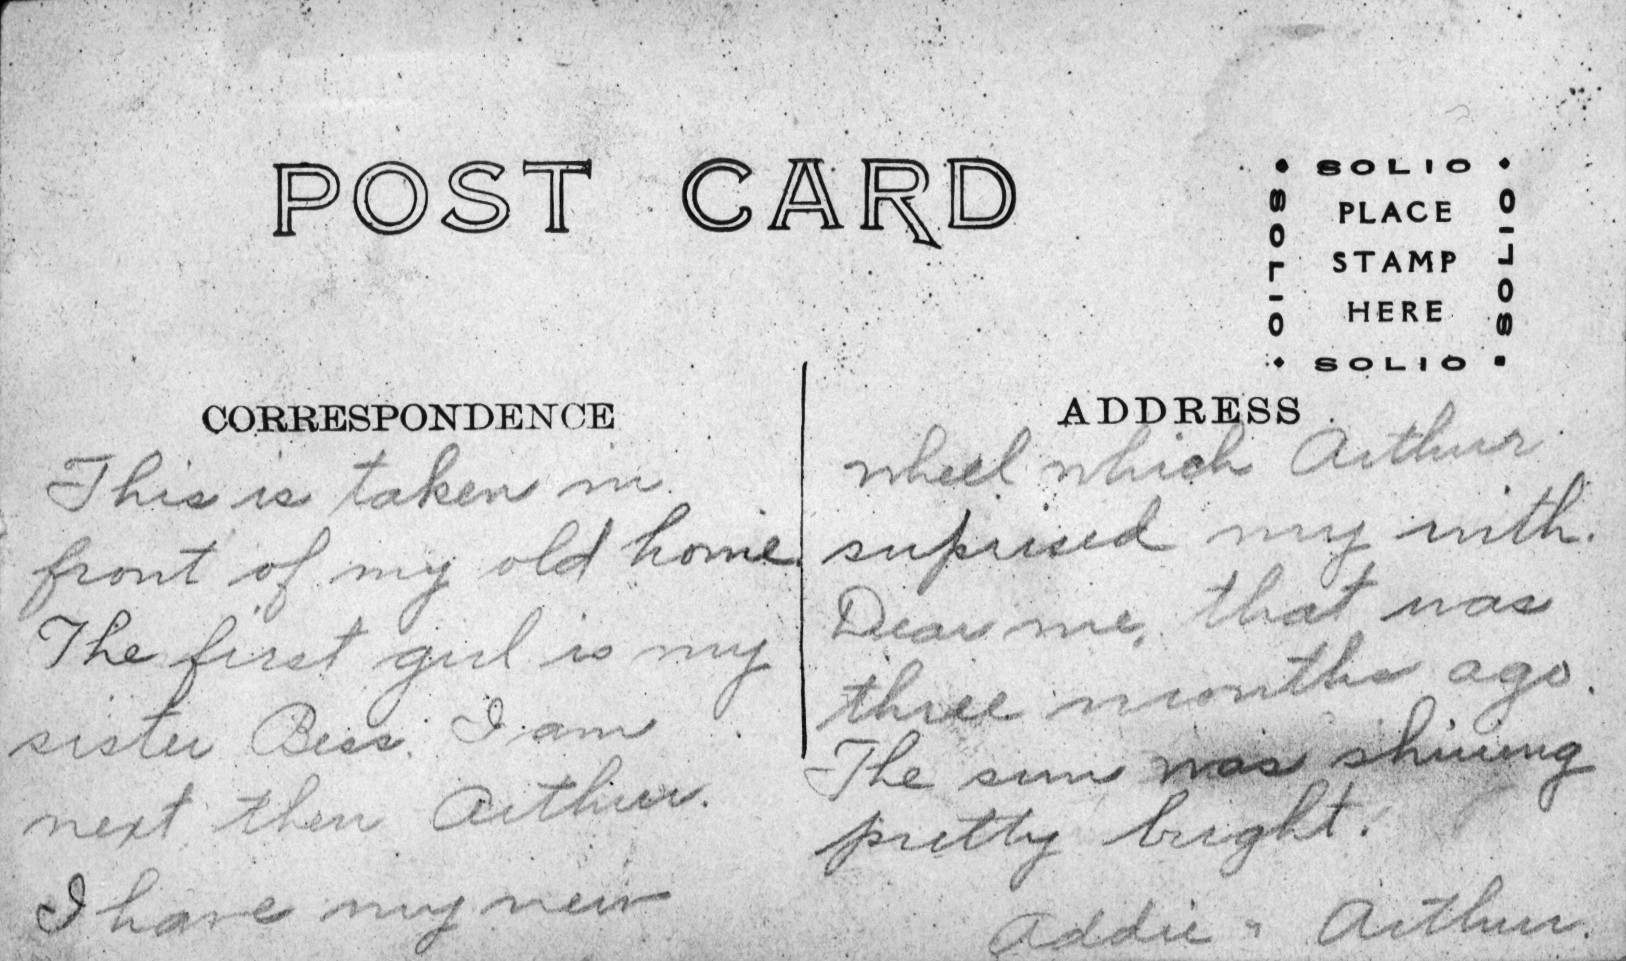 POST CARD
SOLIO
SOLIO
PLACE
STAMP
HERE
SOLIO
SOLIO
CORRESPONDENCE
This is taken in
front of my old home
The first girl is my
sister Bess. I am
next then Arthur.
I have my new
ADDRESS
wheel which Arthur
suprised my with.
Dear me, that was
three months ago.
The sun was shining
pretty bright.
Addie " Arthur.